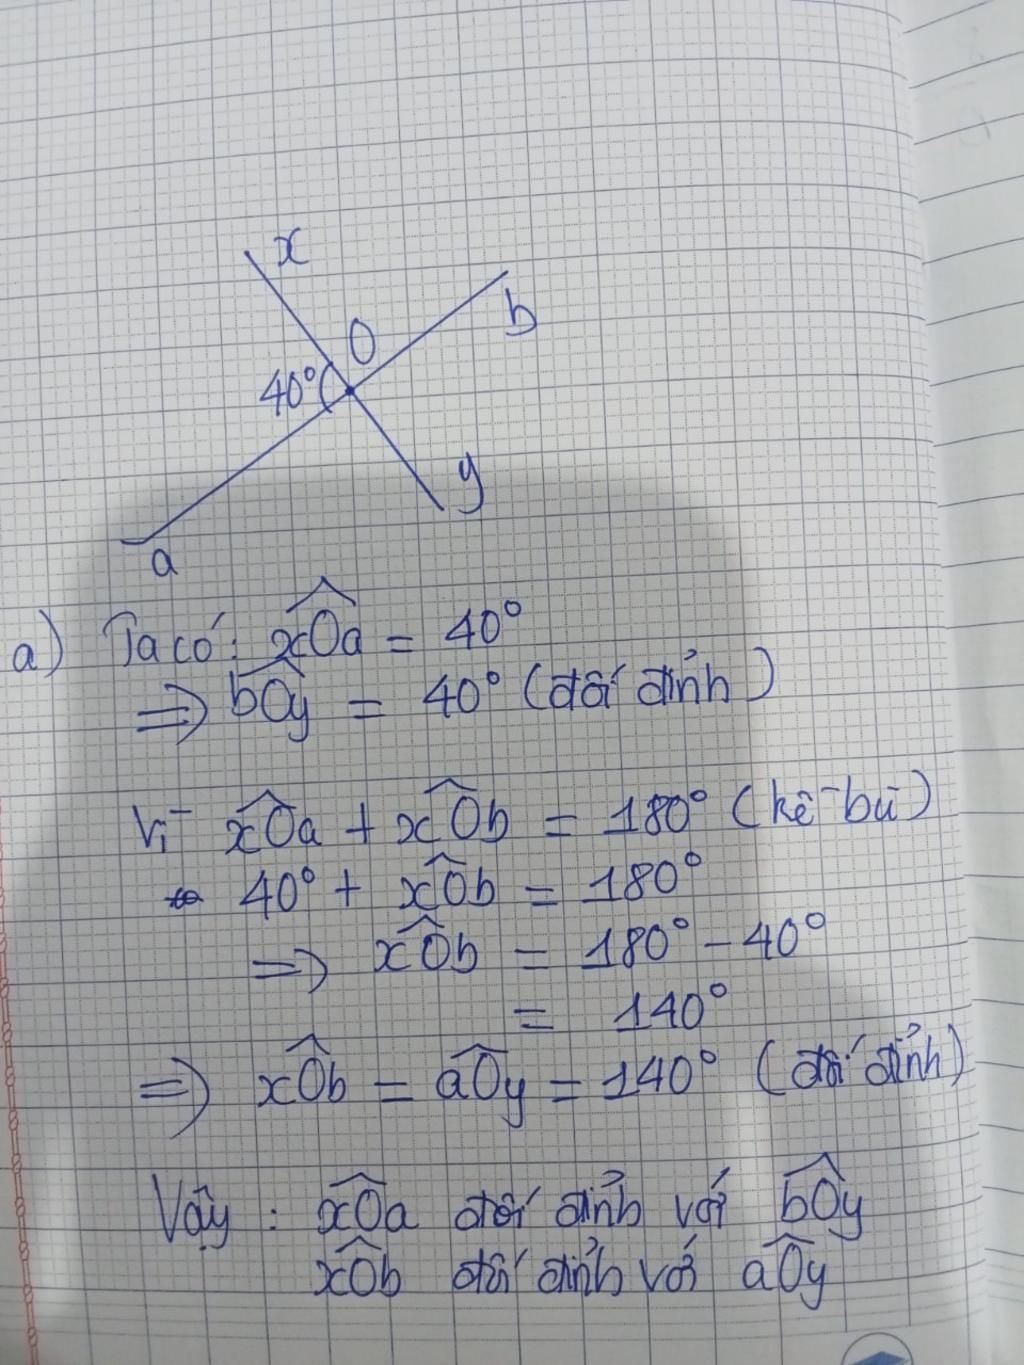 x
b
O
40°
y
a
a) Ta có: xOa = 40°
⇒ bOy = 40° (đối đỉnh)
Vì xOa + xOb = 180° (kề bù)
40° + xOb = 180°
⇒ xOb = 180° - 40°
= 140°
⇒ xOb = aOy = 140° (đối đỉnh)
Vậy : xOa đối đỉnh với bOy
xOb đối đỉnh với aOy